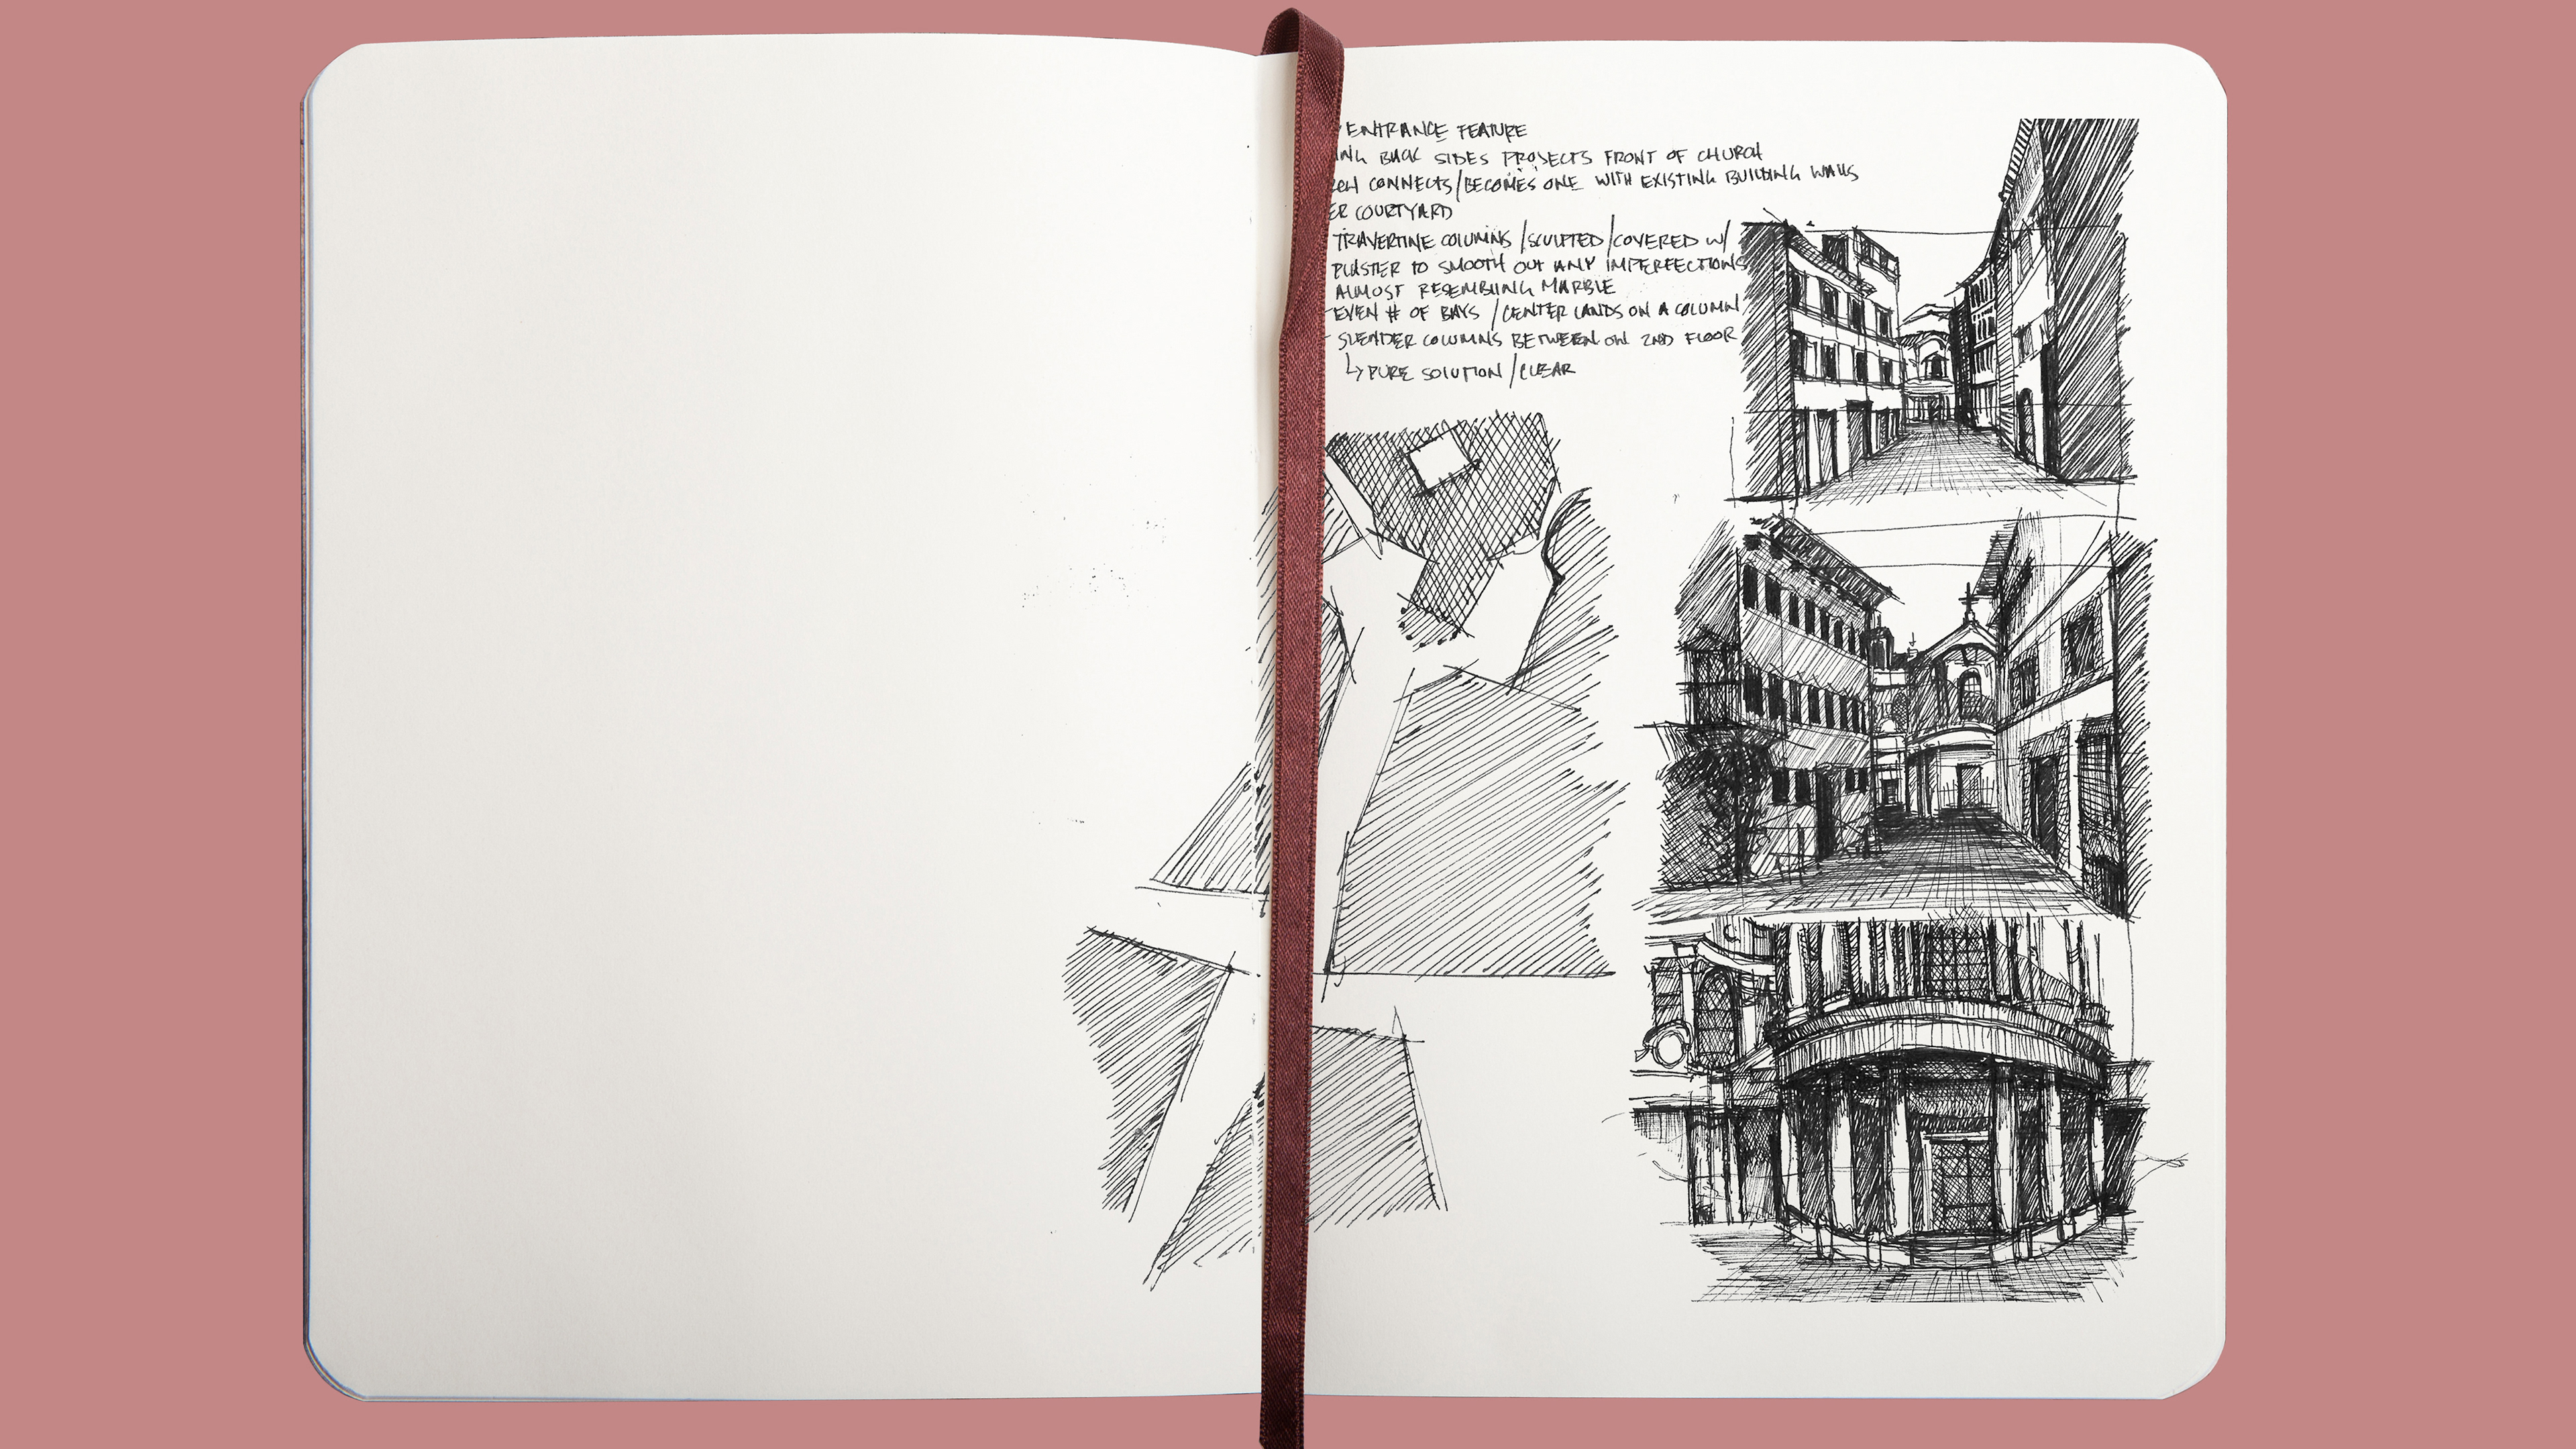 ENTRANCE FEATURE
ING BACK SIDES PROJECTS FRONT OF CHURCH
CONNECTS/BECOMES ONE WITH EXISTING BUILDING WALLS
ER COURTYARD
TRAVERTINE COLUMNS/SCULPTED/COVERED W/
PLASTER TO SMOOTH OUT ANY IMPERFECTIONS
ALMOST RESEMBLING MARBLE
-EVEN # OF BAYS/CENTER LANDS ON A COLUMN
- SLENDER COLUMNS BETWEEN ON 2ND FLOOR
↳ PURE SOLUTION/CLEAR